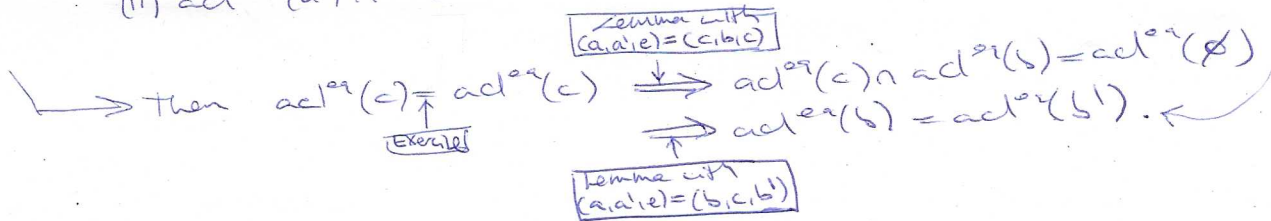 (ii) acl
Lemma with
(a,a',e)=(c,b,c)
then acl^eq(c) = acl^eq(c) ⟹ acl^eq(c) ∩ acl^eq(b) = acl^eq(∅)
Exercise
⟹ acl^eq(b) = acl^eq(b').
Lemma with
(a,a',e)=(b,c,b')